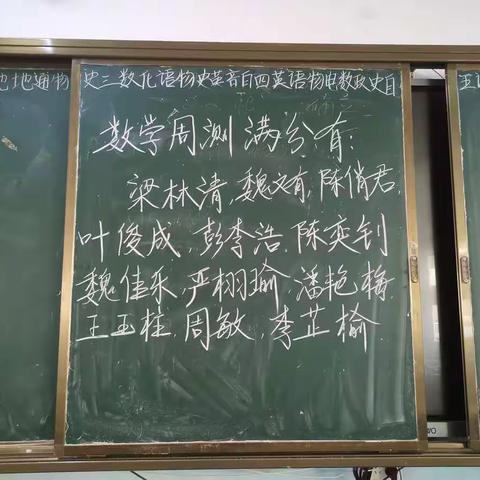 地地通物 史三数化语物史英音自四英语物申数政史自 五
数学周测满分有:
梁林清,魏文有,陈俏君,
叶俊成,彭李浩,陈奕钊
魏佳乐,严栩瑜,潘艳梅,
王玉柱,周敏,李芷榆